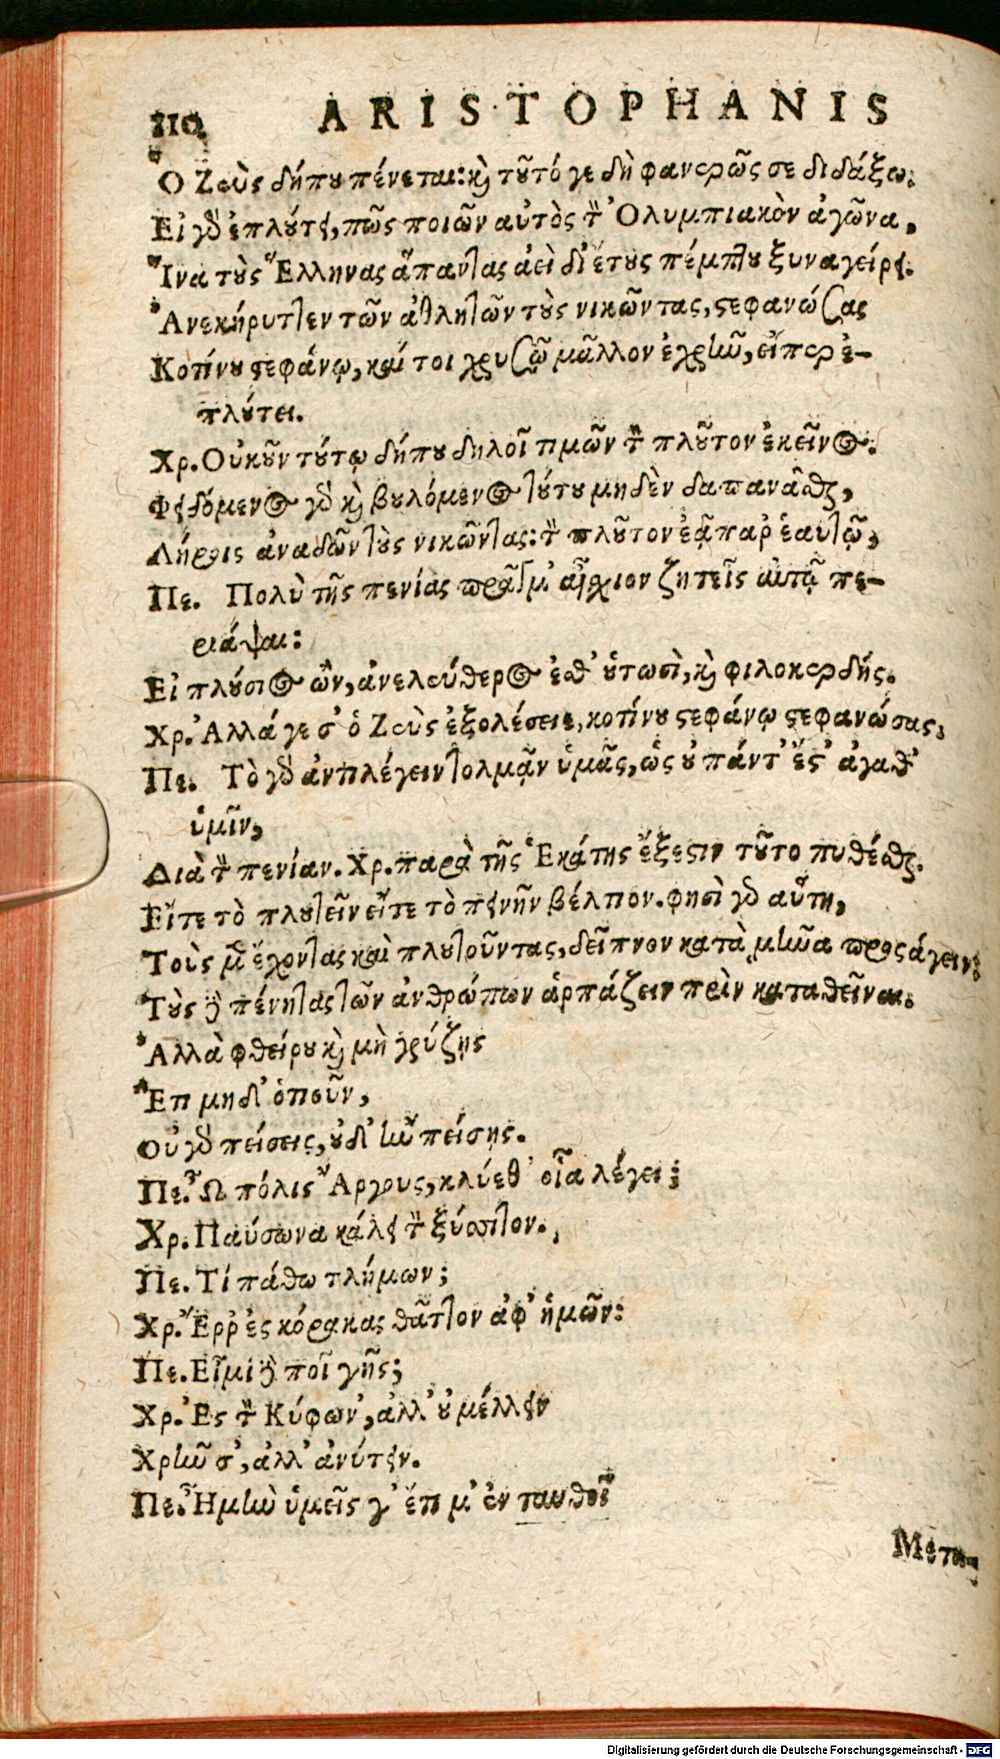 110 ARISTOPHANIS
Ὁ Ζεὺς δήπου πένεται: καὶ τοῦτό γε δὴ φανερῶς σε διδάξω.
Εἰ γὰρ ἐπλούτει, πῶς ποιῶν αὐτὸς τὸν Ὀλυμπιακὸν ἀγῶνα,
Ἵνα τοὺς Ἕλληνας ἅπαντας ἀεὶ δι' ἔτους πέμπτου ξυναγείρει.
Ἀνεκήρυττεν τῶν ἀθλητῶν τοὺς νικῶντας, στεφανώσας
Κοτίνου στεφάνῳ, καί τοι χρυσῷ μᾶλλον ἐχρῆν, εἴπερ ἐ-
πλούτει.
Χρ. Οὐκοῦν τούτῳ δήπου δηλοῖ τιμῶν τὸν πλοῦτον ἐκεῖνος.
Φειδόμενος γὰρ καὶ βουλόμενος τούτου μηδὲν δαπανᾶσθαι,
Λήροις ἀναδῶν τοὺς νικῶντας: τὸν πλοῦτον ἐᾷ παρ' ἑαυτῷ,
Πε. Πολὺ τῆς πενίας πρᾶγμ' αἴσχιον ζητεῖς αὐτᾷ πε-
ριάψαι:
Εἰ πλούσιος ὢν, ἀνελεύθερος ἐσθ' οὑτωσὶ, καὶ φιλοκερδής.
Χρ. Ἀλλά γε σ' ὁ Ζεὺς ἐξολέσειε, κοτίνου στεφάνῳ στεφανώσας,
Πε. Τὸ γὰρ ἀντιλέγειν τολμᾷν ὑμᾶς, ὡς οὐ πάντ' ἔστ' ἀγαθ'
ὑμῖν,
Διὰ τὴν πενίαν. Χρ. παρὰ τῆς Ἑκάτης ἔξεστιν τοῦτο πυθέσθαι.
Εἴτε τὸ πλουτεῖν εἴτε τὸ πεινῆν βέλτιον. φησὶ γὰρ αὕτη,
Τοὺς μὲν ἔχοντας καὶ πλουτοῦντας, δεῖπνον κατὰ μῆνα προσάγειν:
Τοὺς δὲ πένητας τῶν ἀνθρώπων ἁρπάζειν πρὶν καταθεῖναι.
Ἀλλὰ φθείρου καὶ μὴ γρύζῃς
Ἔτι μηδ' ὁτιοῦν,
Οὐ γὰρ πείσεις, οὐδ' ἢν πείσῃς.
Πε. Ὦ πόλις Ἄργους, κλύεθ' οἷα λέγει;
Χρ. Παύσωνα κάλει τὸν ξύσσιτον.
Πε. Τί πάθω τλήμων;
Χρ. Ἔρρ' ἐς κόρακας θᾶττον ἀφ' ἡμῶν:
Πε. Εἶμι δὲ ποῖ γῆς;
Χρ. Ἐς τὸν Κύφων', ἀλλ' οὐ μέλλειν
Χρῆν σ', ἀλλ' ἀνύτειν.
Πε. Ἦ μὴν ὑμεῖς γ' ἔτι μ' ἐνταυθοῖ
Μετα-
Digitalisierung gefördert durch die Deutsche Forschungsgemeinschaft - DFG